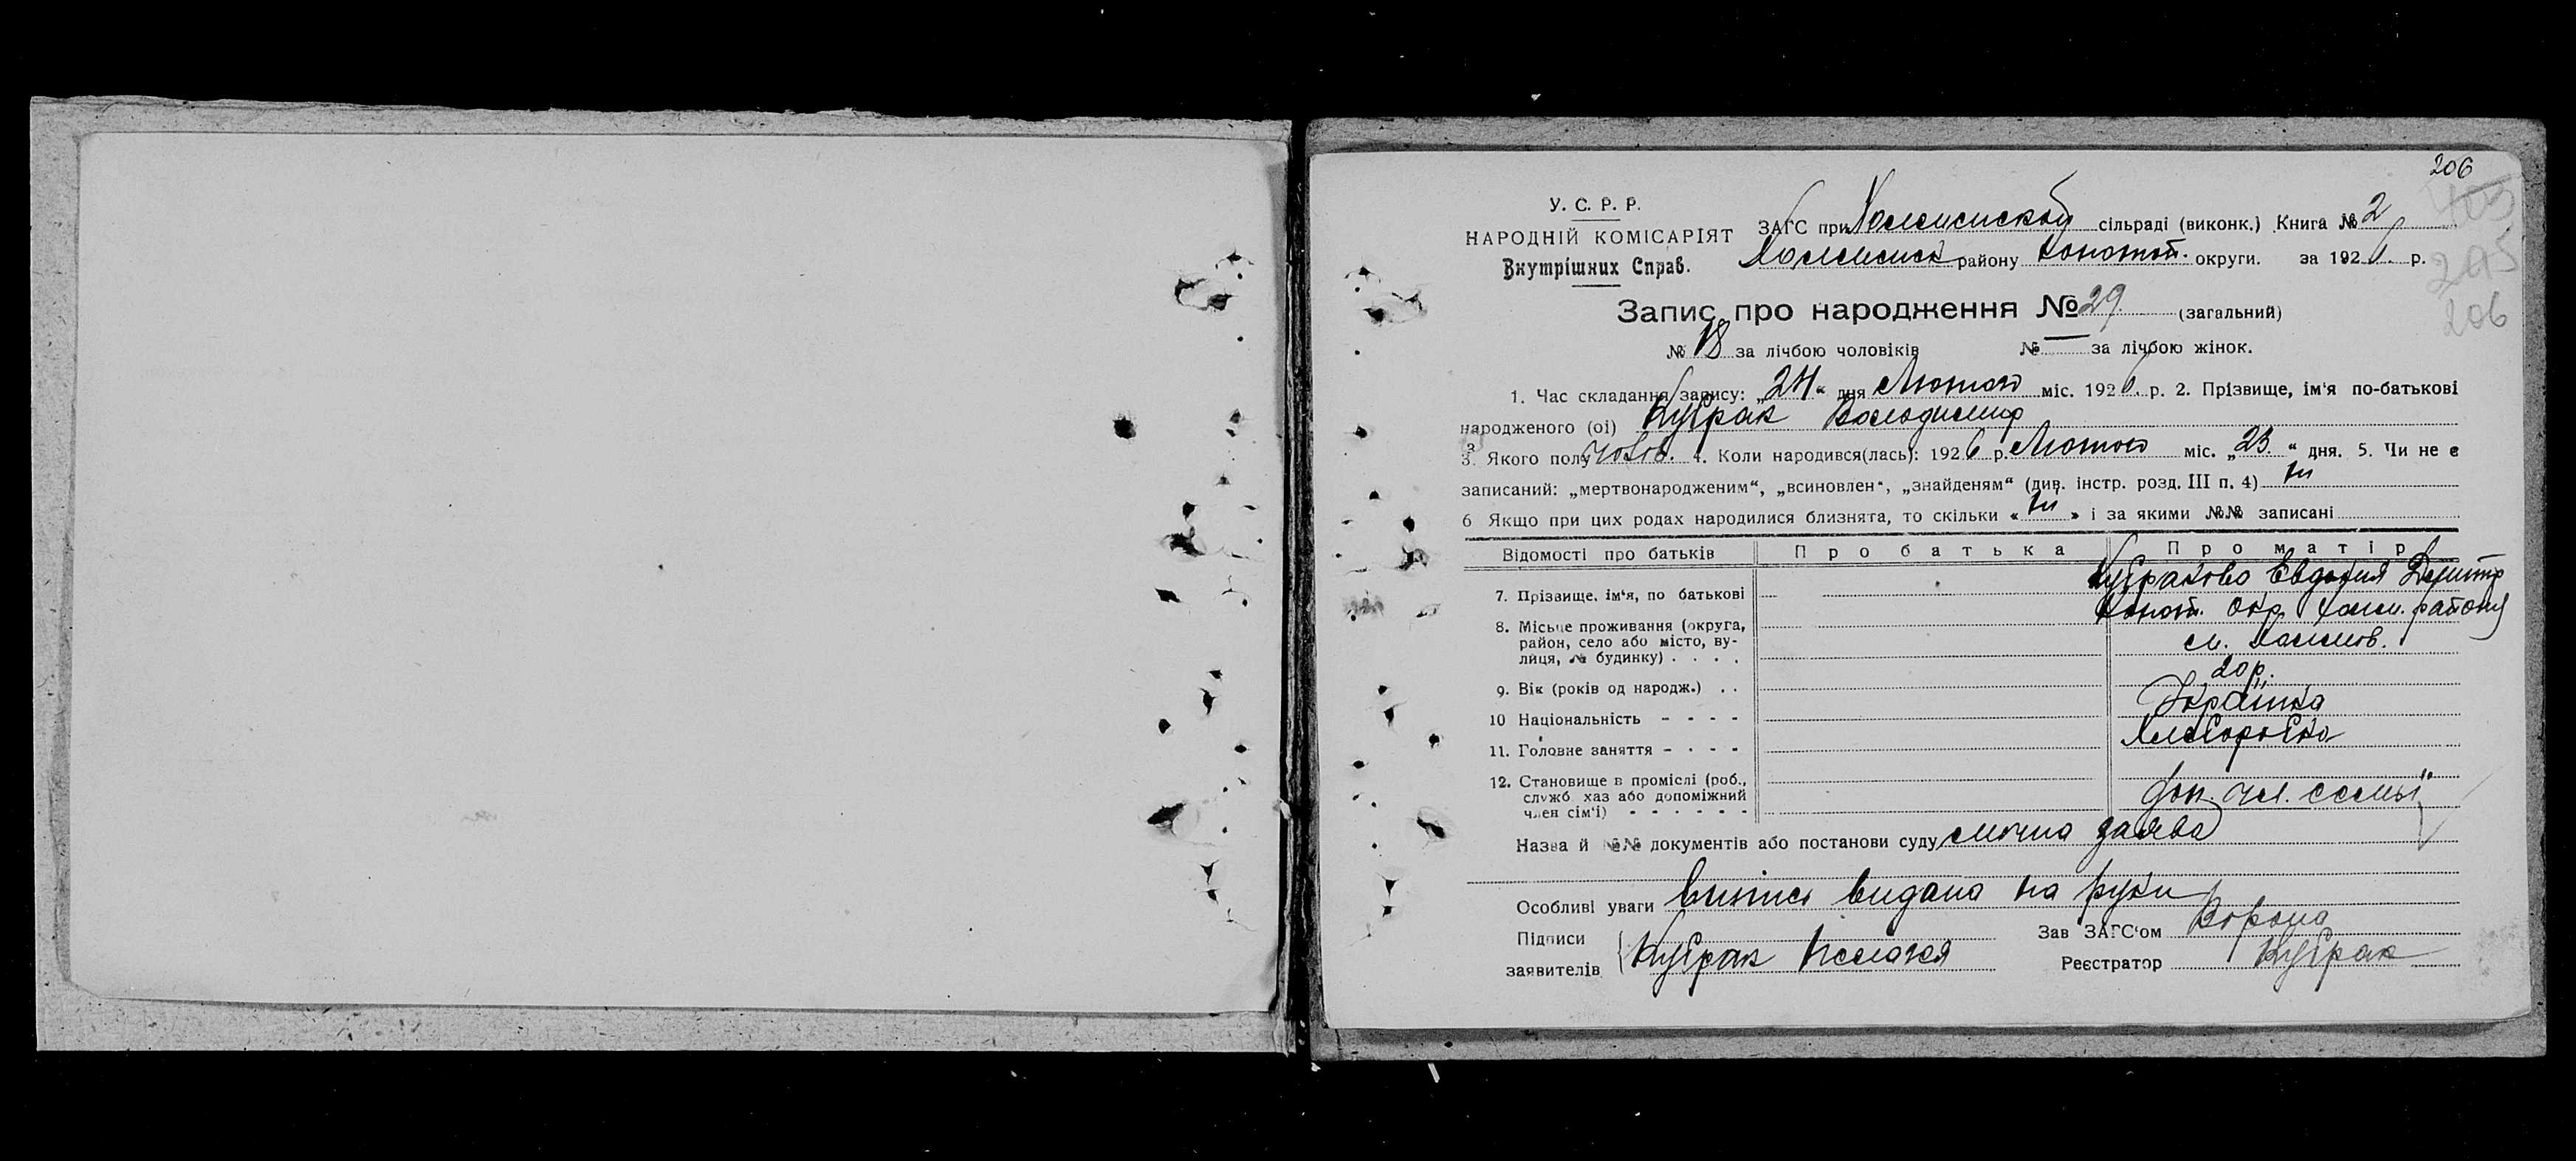 206
У. С. Р. Р.
НАРОДНІЙ КОМІСАРІЯТ
Внутрішних Справ.
ЗАГС при сільраді (виконк.) Книга № 2
району Конотоп. округи. за 1926 р.
205
206
Запис про народження № 29 (загальний)
№ 18 за лічбою чоловіків № — за лічбою жінок.
1. Час складання запису: „24“ дня Лютого міс. 1926 р. 2. Прізвище, ім'я по-батькові
народженого (ої) Кубрак Володимир
3. Якого полу чолов. 4. Коли народився(лась): 1926 р. Лютого міс. „23.“ дня. 5. Чи не є
записаний: „мертвонародженим“, „всиновлен“, „знайденям“ (див. інстр. розд. III п. 4) ні
6 Якщо при цих родах народилися близнята, то скільки «ні» і за якими №№ записані
Відомості про батьків Про батька Про матір
7. Прізвище, ім'я, по батькові — Кубракова Евдокия Дмитр
8. Місьце проживання (округа, Конот. окр. района
район, село або місто, ву-
лиця, № будинку) . . . . м.
9. Вік (років од народж.) . . 20 р.
10 Національність - - - - Українка
11. Головне заняття - - - - Хлеборобка
12. Становище в проміслі (роб.,
служб. хаз або допоміжний доп. чл. семьи
член сім'ї) - - - - - -
Назва й №№ документів або постанови суду заява
Особливі уваги Випись видана на руки
Підписи Зав ЗАГС'ом Ворона
заявителів Кубрак Пелагея Реєстратор Кубрак